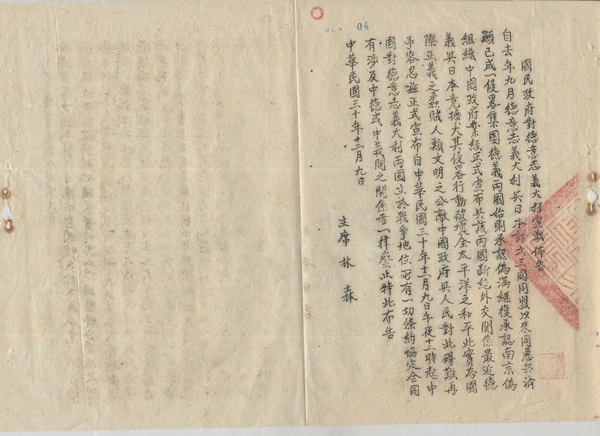 04
國民政府對德意志義大利宣戰佈告
自去年九月德意志義大利與日本訂立三國同盟以來同惡共濟
顯已成一侵畧集團德義兩國始則承認偽滿繼復承認南京偽
組織中國政府業經正式宣布與該兩國斷絕外交關係最近德
義與日本竟擴大其侵畧行動破壞全太平洋之和平此實為國
際正義之蟊賊人類文明之公敵中國政府與人民對此礙難再
予容忍茲正式宣布自中華民國三十年十二月九日午夜十二時起中
國對德意志義大利兩國立於戰爭地位所有一切條約協定合同
有涉及中德或中義間之關係者一律廢止特此布告
中華民國三十年十二月九日
主席 林森